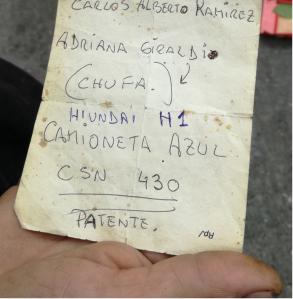 CARLOS ALBERTO RAMIREZ
ADRIANA GIRALDO
(CHUFA.)
HIUNDAI H1
CAMIONETA AZUL
CSN 430
PATENTE.